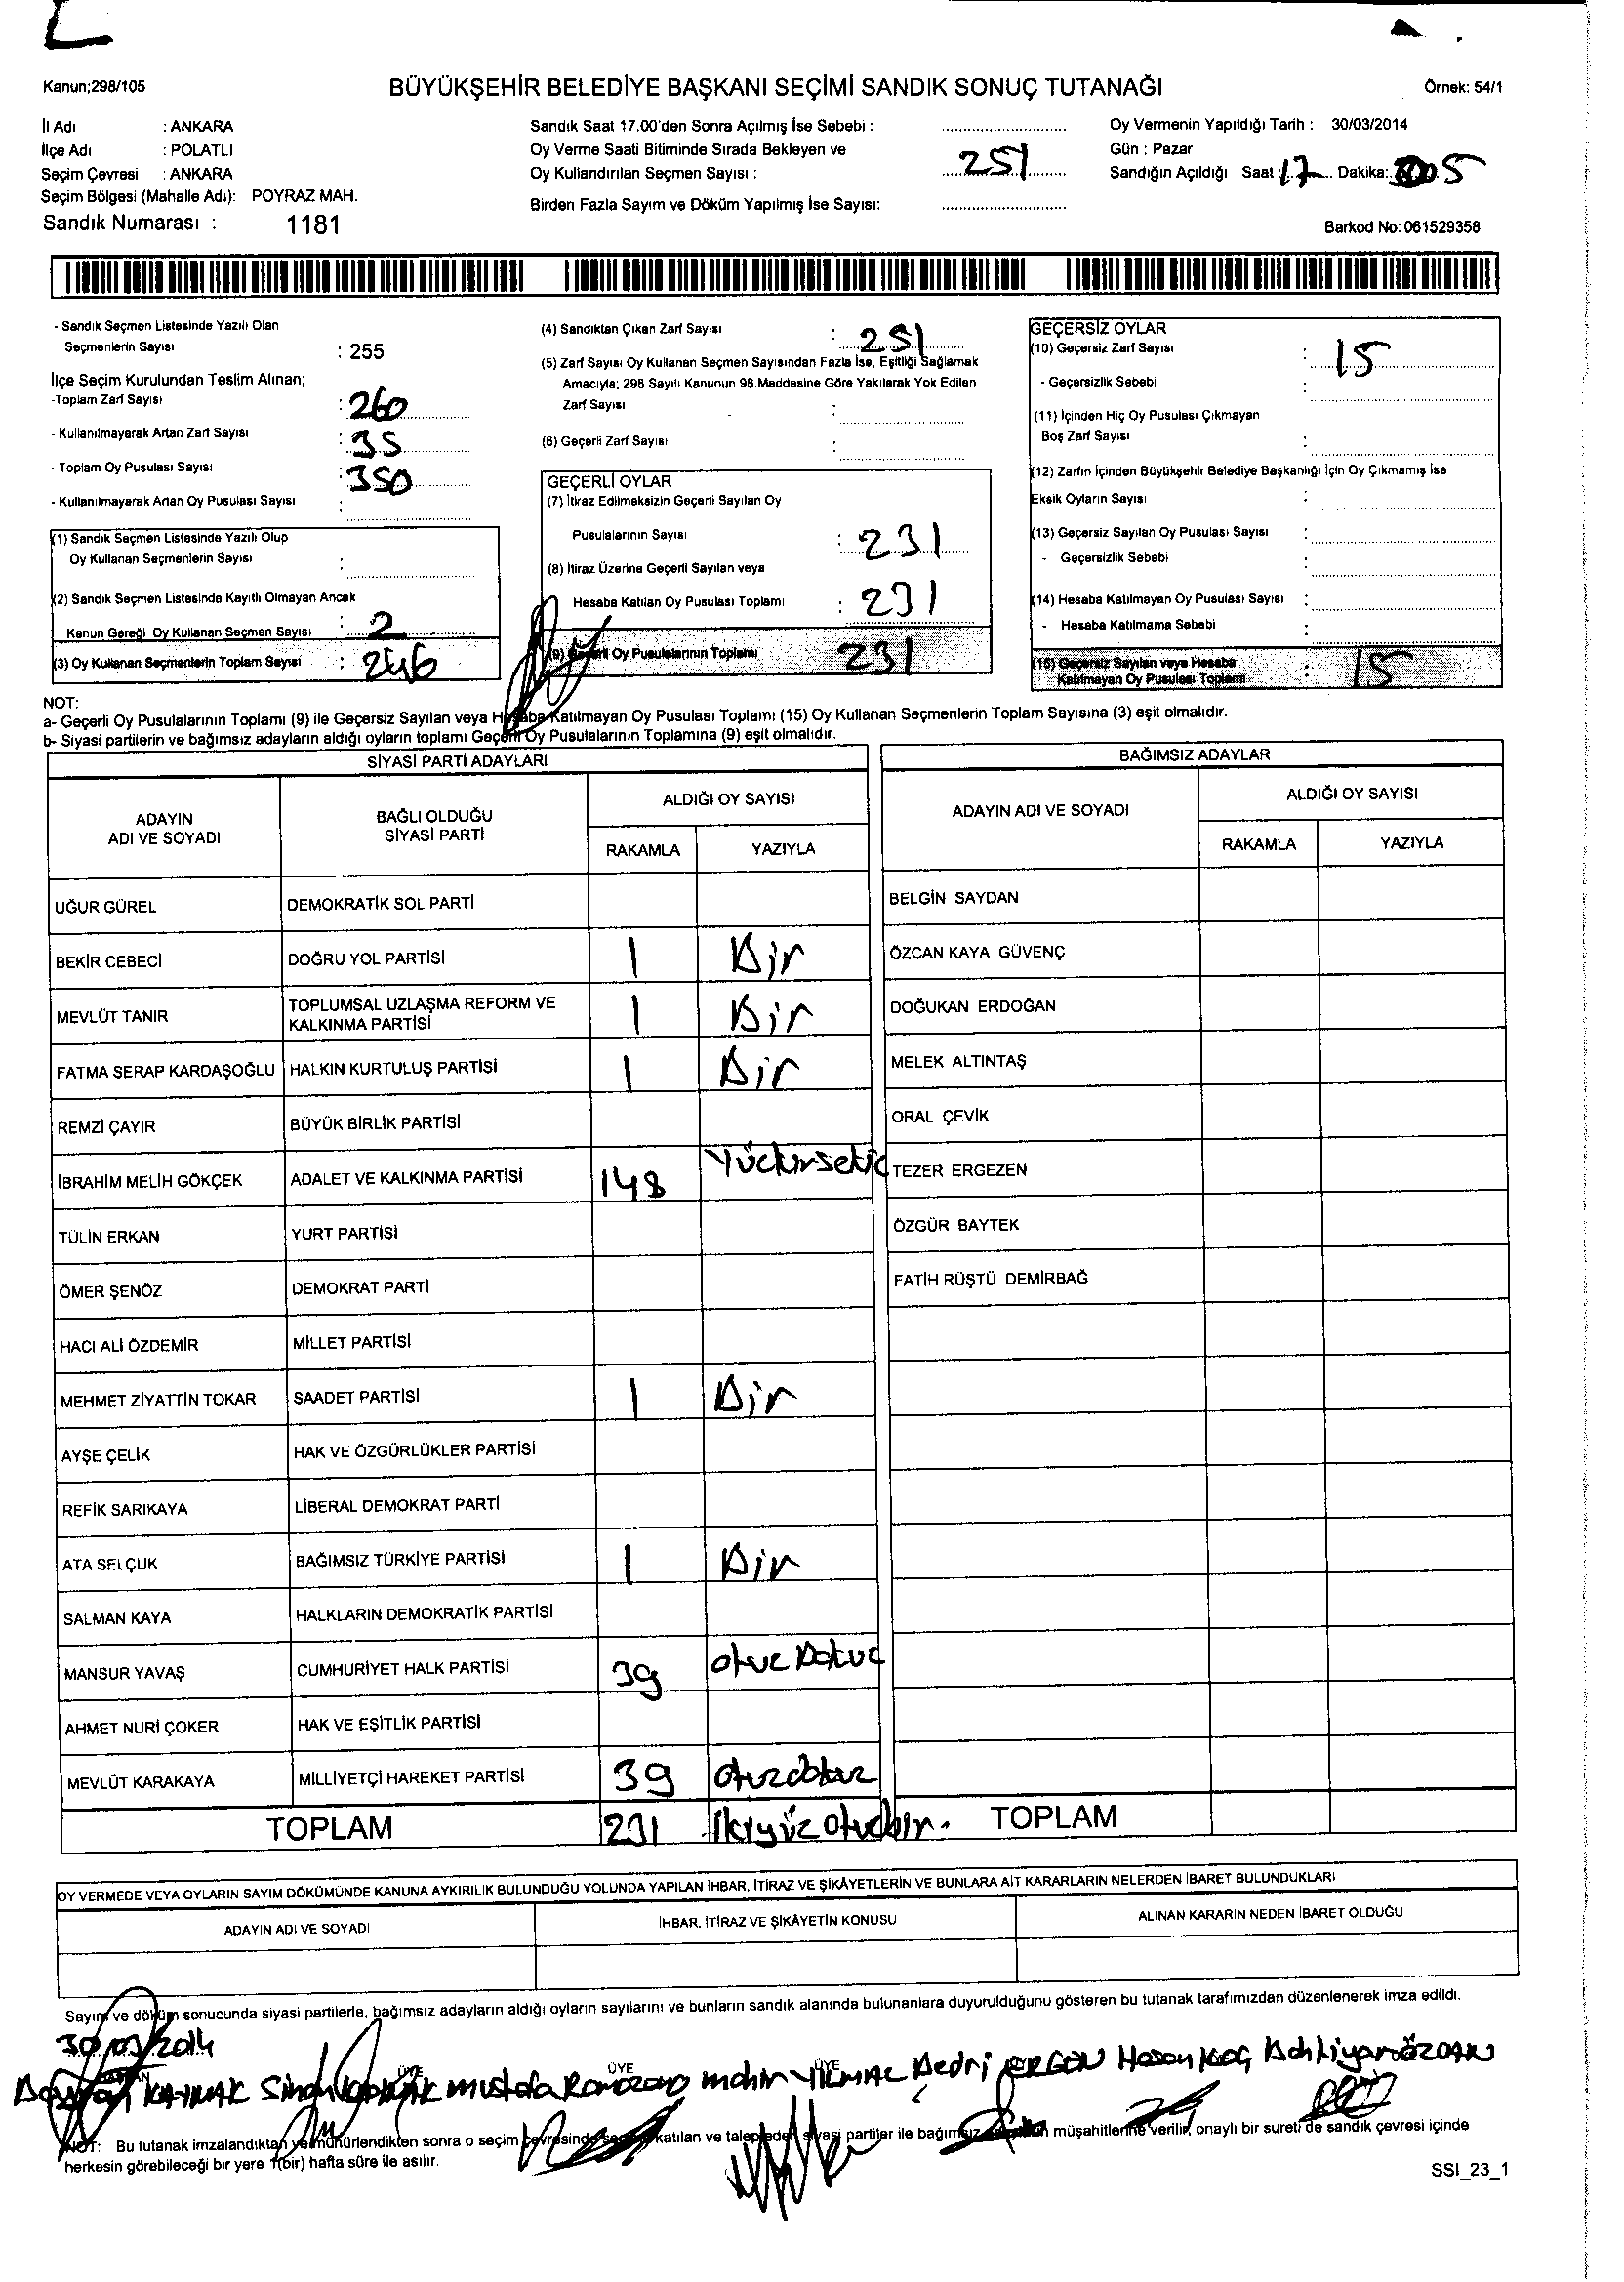 Kanun;298/105
BÜYÜKŞEHİR BELEDİYE BAŞKANI SEÇİMİ SANDIK SONUÇ TUTANAĞI
Örnek: 54/1
İl Adı : ANKARA
İlçe Adı : POLATLI
Seçim Çevresi : ANKARA
Seçim Bölgesi (Mahalle Adı): POYRAZ MAH.
Sandık Numarası : 1181
Sandık Saat 17.00'den Sonra Açılmış İse Sebebi :
Oy Verme Saati Bitiminde Sırada Bekleyen ve
Oy Kullandırılan Seçmen Sayısı : 251
Birden Fazla Sayım ve Döküm Yapılmış İse Sayısı:
Oy Vermenin Yapıldığı Tarih : 30/03/2014
Gün : Pazar
Sandığın Açıldığı Saat : 17 Dakika: 05
Barkod No: 061529358
- Sandık Seçmen Listesinde Yazılı Olan
Seçmenlerin Sayısı : 255
İlçe Seçim Kurulundan Teslim Alınan;
-Toplam Zarf Sayısı : 260
- Kullanılmayarak Artan Zarf Sayısı : 35
- Toplam Oy Pusulası Sayısı : 350
- Kullanılmayarak Artan Oy Pusulası Sayısı :
(1) Sandık Seçmen Listesinde Yazılı Olup
Oy Kullanan Seçmenlerin Sayısı :
(2) Sandık Seçmen Listesinde Kayıtlı Olmayan Ancak
Kanun Gereği Oy Kullanan Seçmen Sayısı : 2
(3) Oy Kullanan Seçmenlerin Toplam Sayısı : 246
(4) Sandıktan Çıkan Zarf Sayısı : 251
(5) Zarf Sayısı Oy Kullanan Seçmen Sayısından Fazla İse, Eşitliği Sağlamak
Amacıyla; 298 Sayılı Kanunun 98.Maddesine Göre Yakılarak Yok Edilen
Zarf Sayısı :
(6) Geçerli Zarf Sayısı :
GEÇERLİ OYLAR
(7) İtiraz Edilmeksizin Geçerli Sayılan Oy
Pusulalarının Sayısı : 231
(8) İtiraz Üzerine Geçerli Sayılan veya
Hesaba Katılan Oy Pusulası Toplamı : 231
(9) Geçerli Oy Pusulalarının Toplamı 231
GEÇERSİZ OYLAR
(10) Geçersiz Zarf Sayısı : 15
- Geçersizlik Sebebi :
(11) İçinden Hiç Oy Pusulası Çıkmayan
Boş Zarf Sayısı :
(12) Zarfın İçinden Büyükşehir Belediye Başkanlığı İçin Oy Çıkmamış İse
Eksik Oyların Sayısı :
(13) Geçersiz Sayılan Oy Pusulası Sayısı :
- Geçersizlik Sebebi :
(14) Hesaba Katılmayan Oy Pusulası Sayısı :
- Hesaba Katılmama Sebebi :
(15) Geçersiz Sayılan veya Hesaba
Katılmayan Oy Pusulası Toplamı : 15
NOT:
a- Geçerli Oy Pusulalarının Toplamı (9) ile Geçersiz Sayılan veya Hesaba Katılmayan Oy Pusulası Toplamı (15) Oy Kullanan Seçmenlerin Toplam Sayısına (3) eşit olmalıdır.
b- Siyasi partilerin ve bağımsız adayların aldığı oyların toplamı Geçerli Oy Pusulalarının Toplamına (9) eşit olmalıdır.
SİYASİ PARTİ ADAYLARI
ADAYIN ADI VE SOYADI BAĞLI OLDUĞU SİYASİ PARTİ ALDIĞI OY SAYISI
RAKAMLA YAZIYLA
UĞUR GÜREL DEMOKRATİK SOL PARTİ
BEKİR CEBECİ DOĞRU YOL PARTİSİ 1 Bir
MEVLÜT TANIR TOPLUMSAL UZLAŞMA REFORM VE KALKINMA PARTİSİ 1 Bir
FATMA SERAP KARDAŞOĞLU HALKIN KURTULUŞ PARTİSİ 1 Bir
REMZİ ÇAYIR BÜYÜK BİRLİK PARTİSİ
İBRAHİM MELİH GÖKÇEK ADALET VE KALKINMA PARTİSİ 148
TÜLİN ERKAN YURT PARTİSİ
ÖMER ŞENÖZ DEMOKRAT PARTİ
HACI ALİ ÖZDEMİR MİLLET PARTİSİ
MEHMET ZİYATTİN TOKAR SAADET PARTİSİ 1 Bir
AYŞE ÇELİK HAK VE ÖZGÜRLÜKLER PARTİSİ
REFİK SARIKAYA LİBERAL DEMOKRAT PARTİ
ATA SELÇUK BAĞIMSIZ TÜRKİYE PARTİSİ 1 Bir
SALMAN KAYA HALKLARIN DEMOKRATİK PARTİSİ
MANSUR YAVAŞ CUMHURİYET HALK PARTİSİ 39 otuz Dokuz
AHMET NURİ ÇOKER HAK VE EŞİTLİK PARTİSİ
MEVLÜT KARAKAYA MİLLİYETÇİ HAREKET PARTİSİ 39 otuzdokuz
TOPLAM 231 İkiyüz otuzbir.
BAĞIMSIZ ADAYLAR
ADAYIN ADI VE SOYADI ALDIĞI OY SAYISI
RAKAMLA YAZIYLA
BELGİN SAYDAN
ÖZCAN KAYA GÜVENÇ
DOĞUKAN ERDOĞAN
MELEK ALTINTAŞ
ORAL ÇEVİK
TEZER ERGEZEN
ÖZGÜR BAYTEK
FATİH RÜŞTÜ DEMİRBAĞ
TOPLAM
OY VERMEDE VEYA OYLARIN SAYIM DÖKÜMÜNDE KANUNA AYKIRILIK BULUNDUĞU YOLUNDA YAPILAN İHBAR, İTİRAZ VE ŞİKÂYETLERİN VE BUNLARA AİT KARARLARIN NELERDEN İBARET BULUNDUKLARI
ADAYIN ADI VE SOYADI İHBAR, İTİRAZ VE ŞİKÂYETİN KONUSU ALINAN KARARIN NEDEN İBARET OLDUĞU
Sayım ve döküm sonucunda siyasi partilerle, bağımsız adayların aldığı oyların sayılarını ve bunların sandık alanında bulunanlara duyurulduğunu gösteren bu tutanak tarafımızdan düzenlenerek imza edildi.
30/03/2014
ÜYE ÜYE ÜYE
KAYNAK Sinan Mustafa Ramazan Mahir YILMAZ Bedri ERGÜN Hasan KOÇ Bahtiyar ÖZCAN
NOT: Bu tutanak imzalandıktan ve mühürlendikten sonra o seçim çevresinde seçime katılan ve talep eden siyasi partiler ile bağımsız adayların müşahitlerine verilir, onaylı bir sureti de sandık çevresi içinde
herkesin görebileceği bir yere 1(bir) hafta süre ile asılır.
SSI_23_1